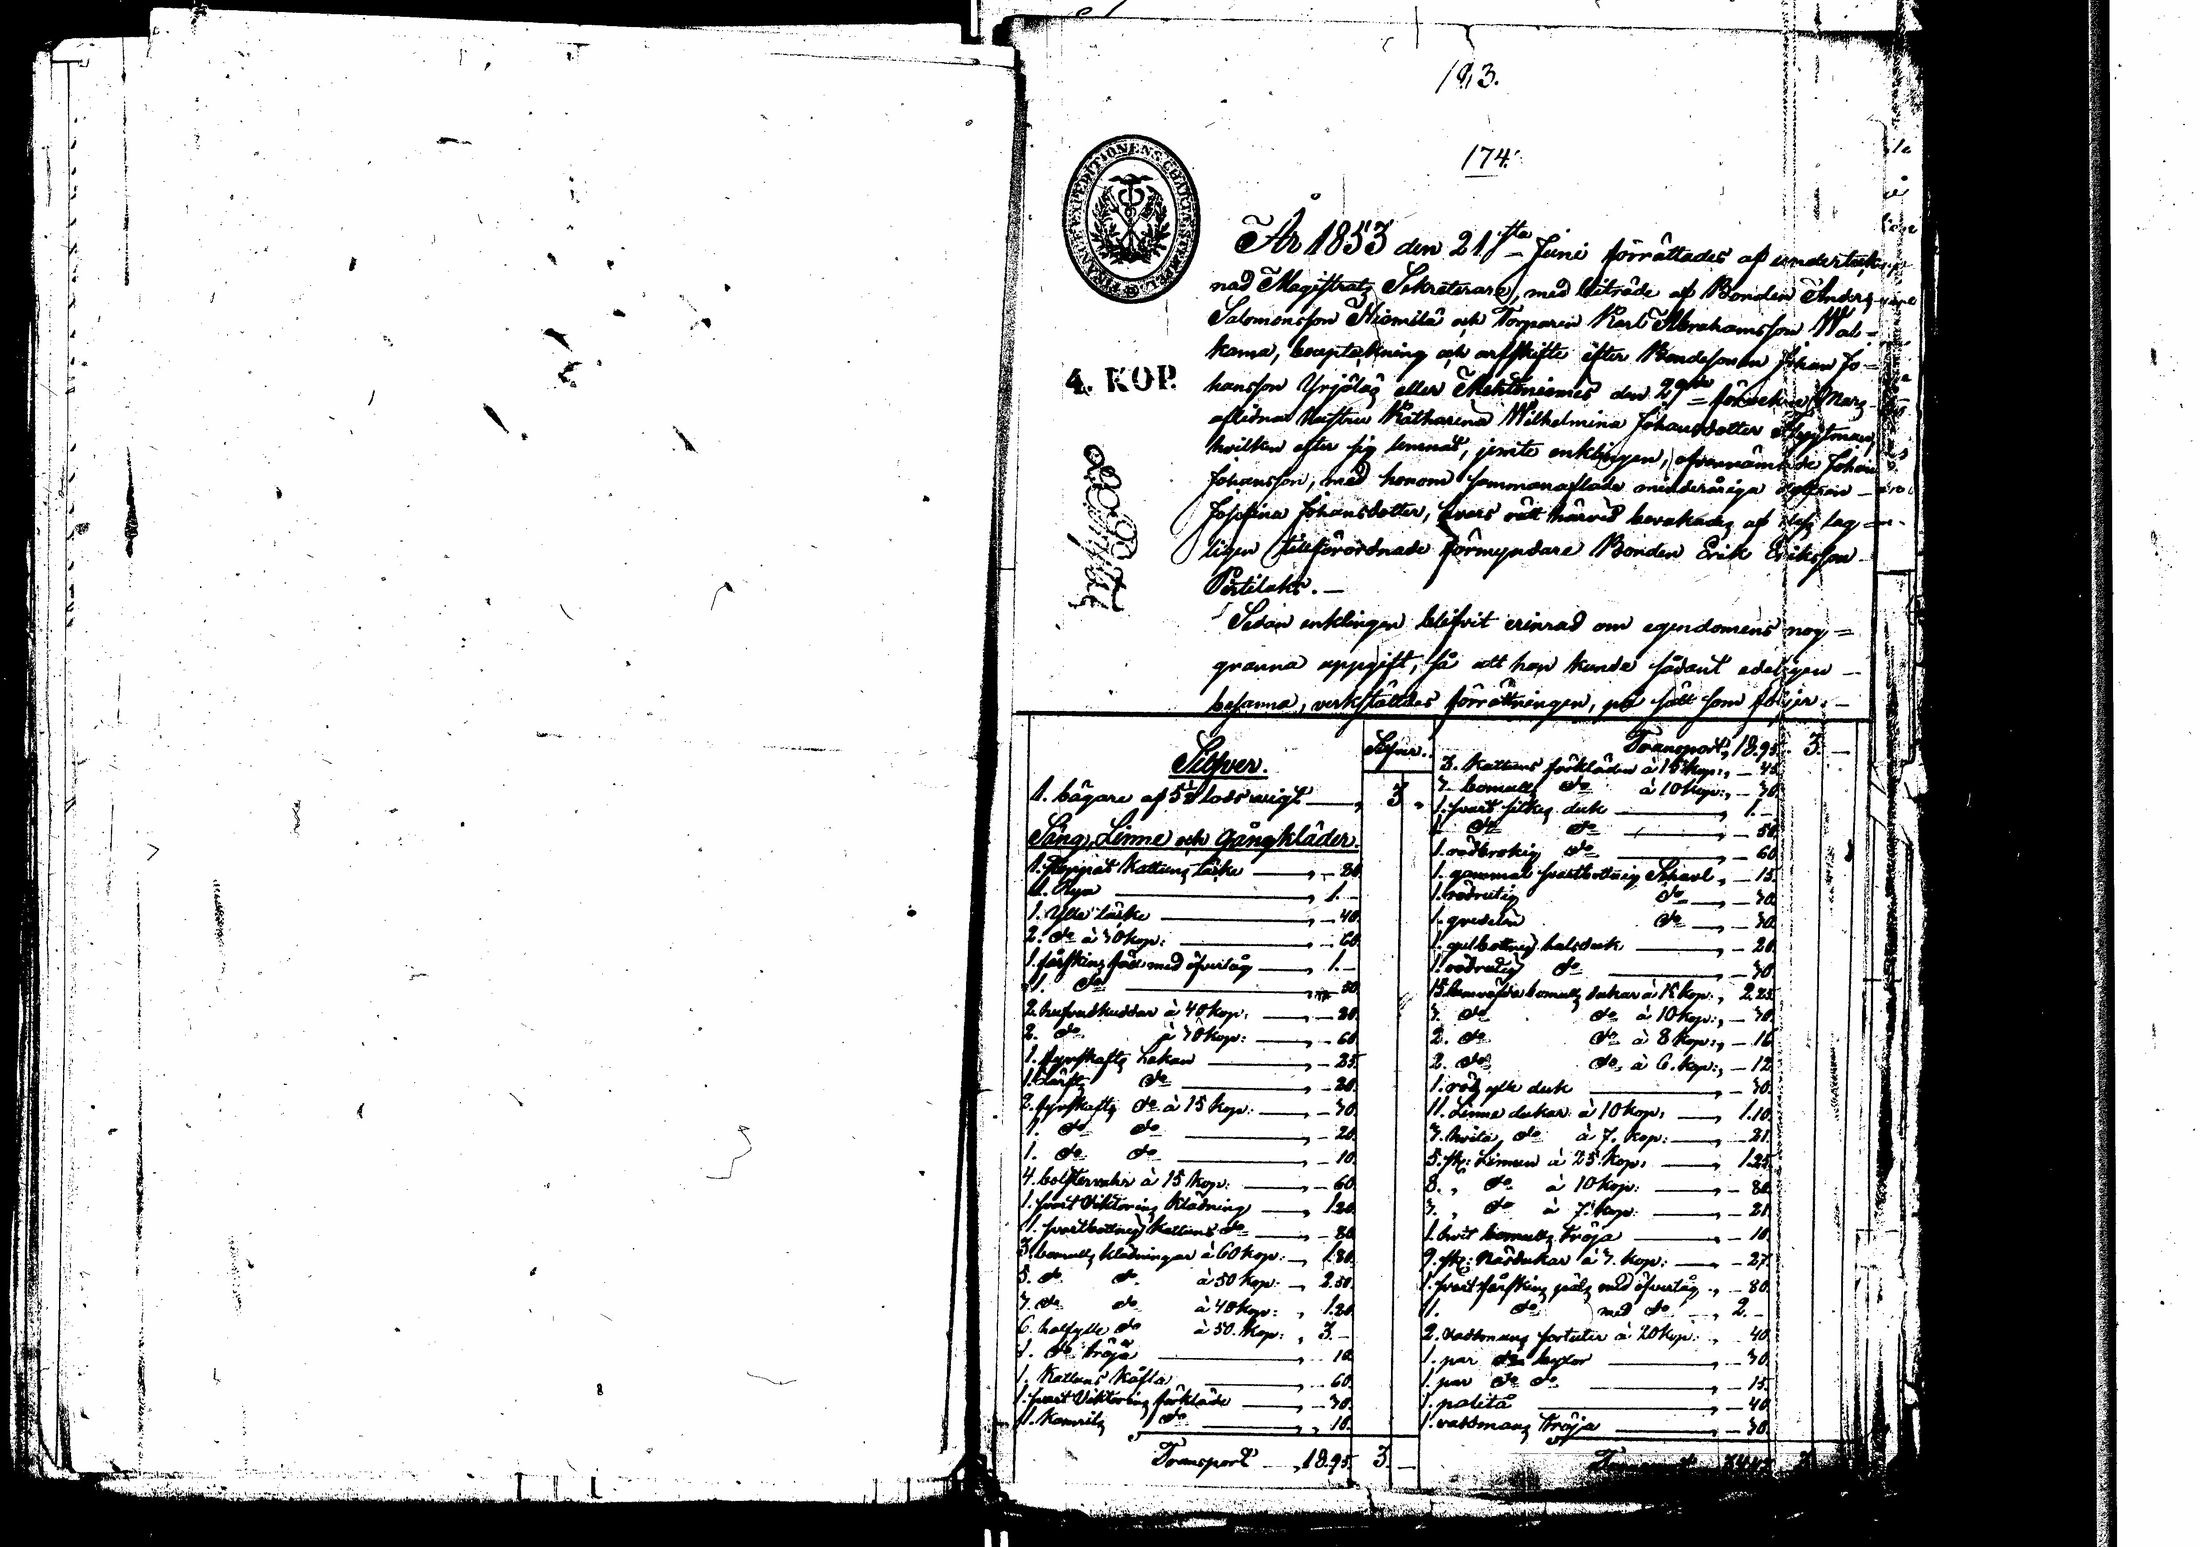 183.
174.
FINANCE EXPEDITIONENS CHARTÆ STÄMPEL
4. KOP.
År 1853 den 21sta Juni förrättades af underteck-
nad Magistrats Sekreterare, med biträde af Bonden Anders
Salomonsson Niemilä och Torparen Karl Abrahamsson Wal-
kama, bouptekning och arfskifte efter Bondesonen Johan Jo-
hansson Yrjölas eller Mektöniemis den 29de sistvekne Mars
aflidna hustru Katharina Wilhelmina Johansdotter
hvilken efter sig lemnat, jemte enklingen, ofvannämnde Johan
Johansson, med honom sammanaflade minderåriga dottren
Josefina Johansdotter, hvars rätt härvid bevakades af dess lag-
ligen tillförordnade förmyndare Bonden Erik Eriksson
Pertilaks. —
Sedan enklingen blifvit erinrad om egendomens nog-
granna uppgift, så att han kunde sådant edeligen
besanna, verkställdes förrättningen, på sätt som följer. —
Silfver.
Silfver.
1. bägare af 5½ lods vigt — 3 „
Säng, Linne och Gångkläder.
1. stoppat Kattuns täcke — 80.
1. Rya — 1. –
1. Ylle täcke — 40.
2. do à 30 kop: — 60.
1. fårskins fäll med öfvertåg — 1. –
1. do — 50.
2. hufvudkuddar à 40 kop: — 80.
2. do à 30 kop: — 60.
1. fyrskafts Lakan — 25.
1. Lärfts do — 20.
2. fyrskafts do à 15 kop: — 30.
1. do do — 20.
1. do do — 10.
4. bolstervahr à 15 kop: — 60.
1. svart Viktorins Klädning — 1.20.
1. svartbottnig Kattuns do — 80.
3. bomulls klädningar à 60 kop: — 1.80.
5. do do à 50 kop: — 2.50.
3. do do à 40 kop: „ 1.20.
6. halfylle do à 50. kop: „ 3. –
1. do tröja — 10.
1. Kattuns Kofta — 60.
1. svart Viktorins förkläde — 30.
1. Kamrits do — 10.
Transport — „ 18.95. 3. –
Transport, 18.95. 3. –
3. Kattuns förkläden à 15 kop: „ – 45.
3. bomulls do à 10 kop: „ – 30.
1. svart silkes duk — 1. –
1. do do — 50.
1. rödbrokig do — 60.
1. gammal svartbottnig Schavl „ – 15.
1. rödrutig do — 30.
1. gredelin do — 30.
1. gulbottnig halsduk — 20.
1. rödrutig do — 30.
15. hemväfda bomulls dukar à 15 kop: „ 2.25.
3. do do à 10 kop: „ – 30.
2. do do à 8 kop: „ – 16
2. do do à 6. kop: „ – 12
1. röd ylle duk — 30.
11. Linne dukar à 10 kop: — 1.10.
3. hvita do à 7. kop: — 21.
5. st: Linnen à 25. kop: — 1.25.
8. „ do à 10 kop: — 80.
3. „ do à 7. kop: — 21.
1. hvit bomulls tröja — 10.
9. st: Näsdukar à 3. kop: — 27.
1. svart fårskins päls med öfvertåg „ – 80.
1. do med do „ 2. –
2. vadmans à 20 kop: „ 40.
1. par do byxor — 30.
1. par do do — 15.
1. paltå — 40.
1. vadmans tröja — 30.
Transport